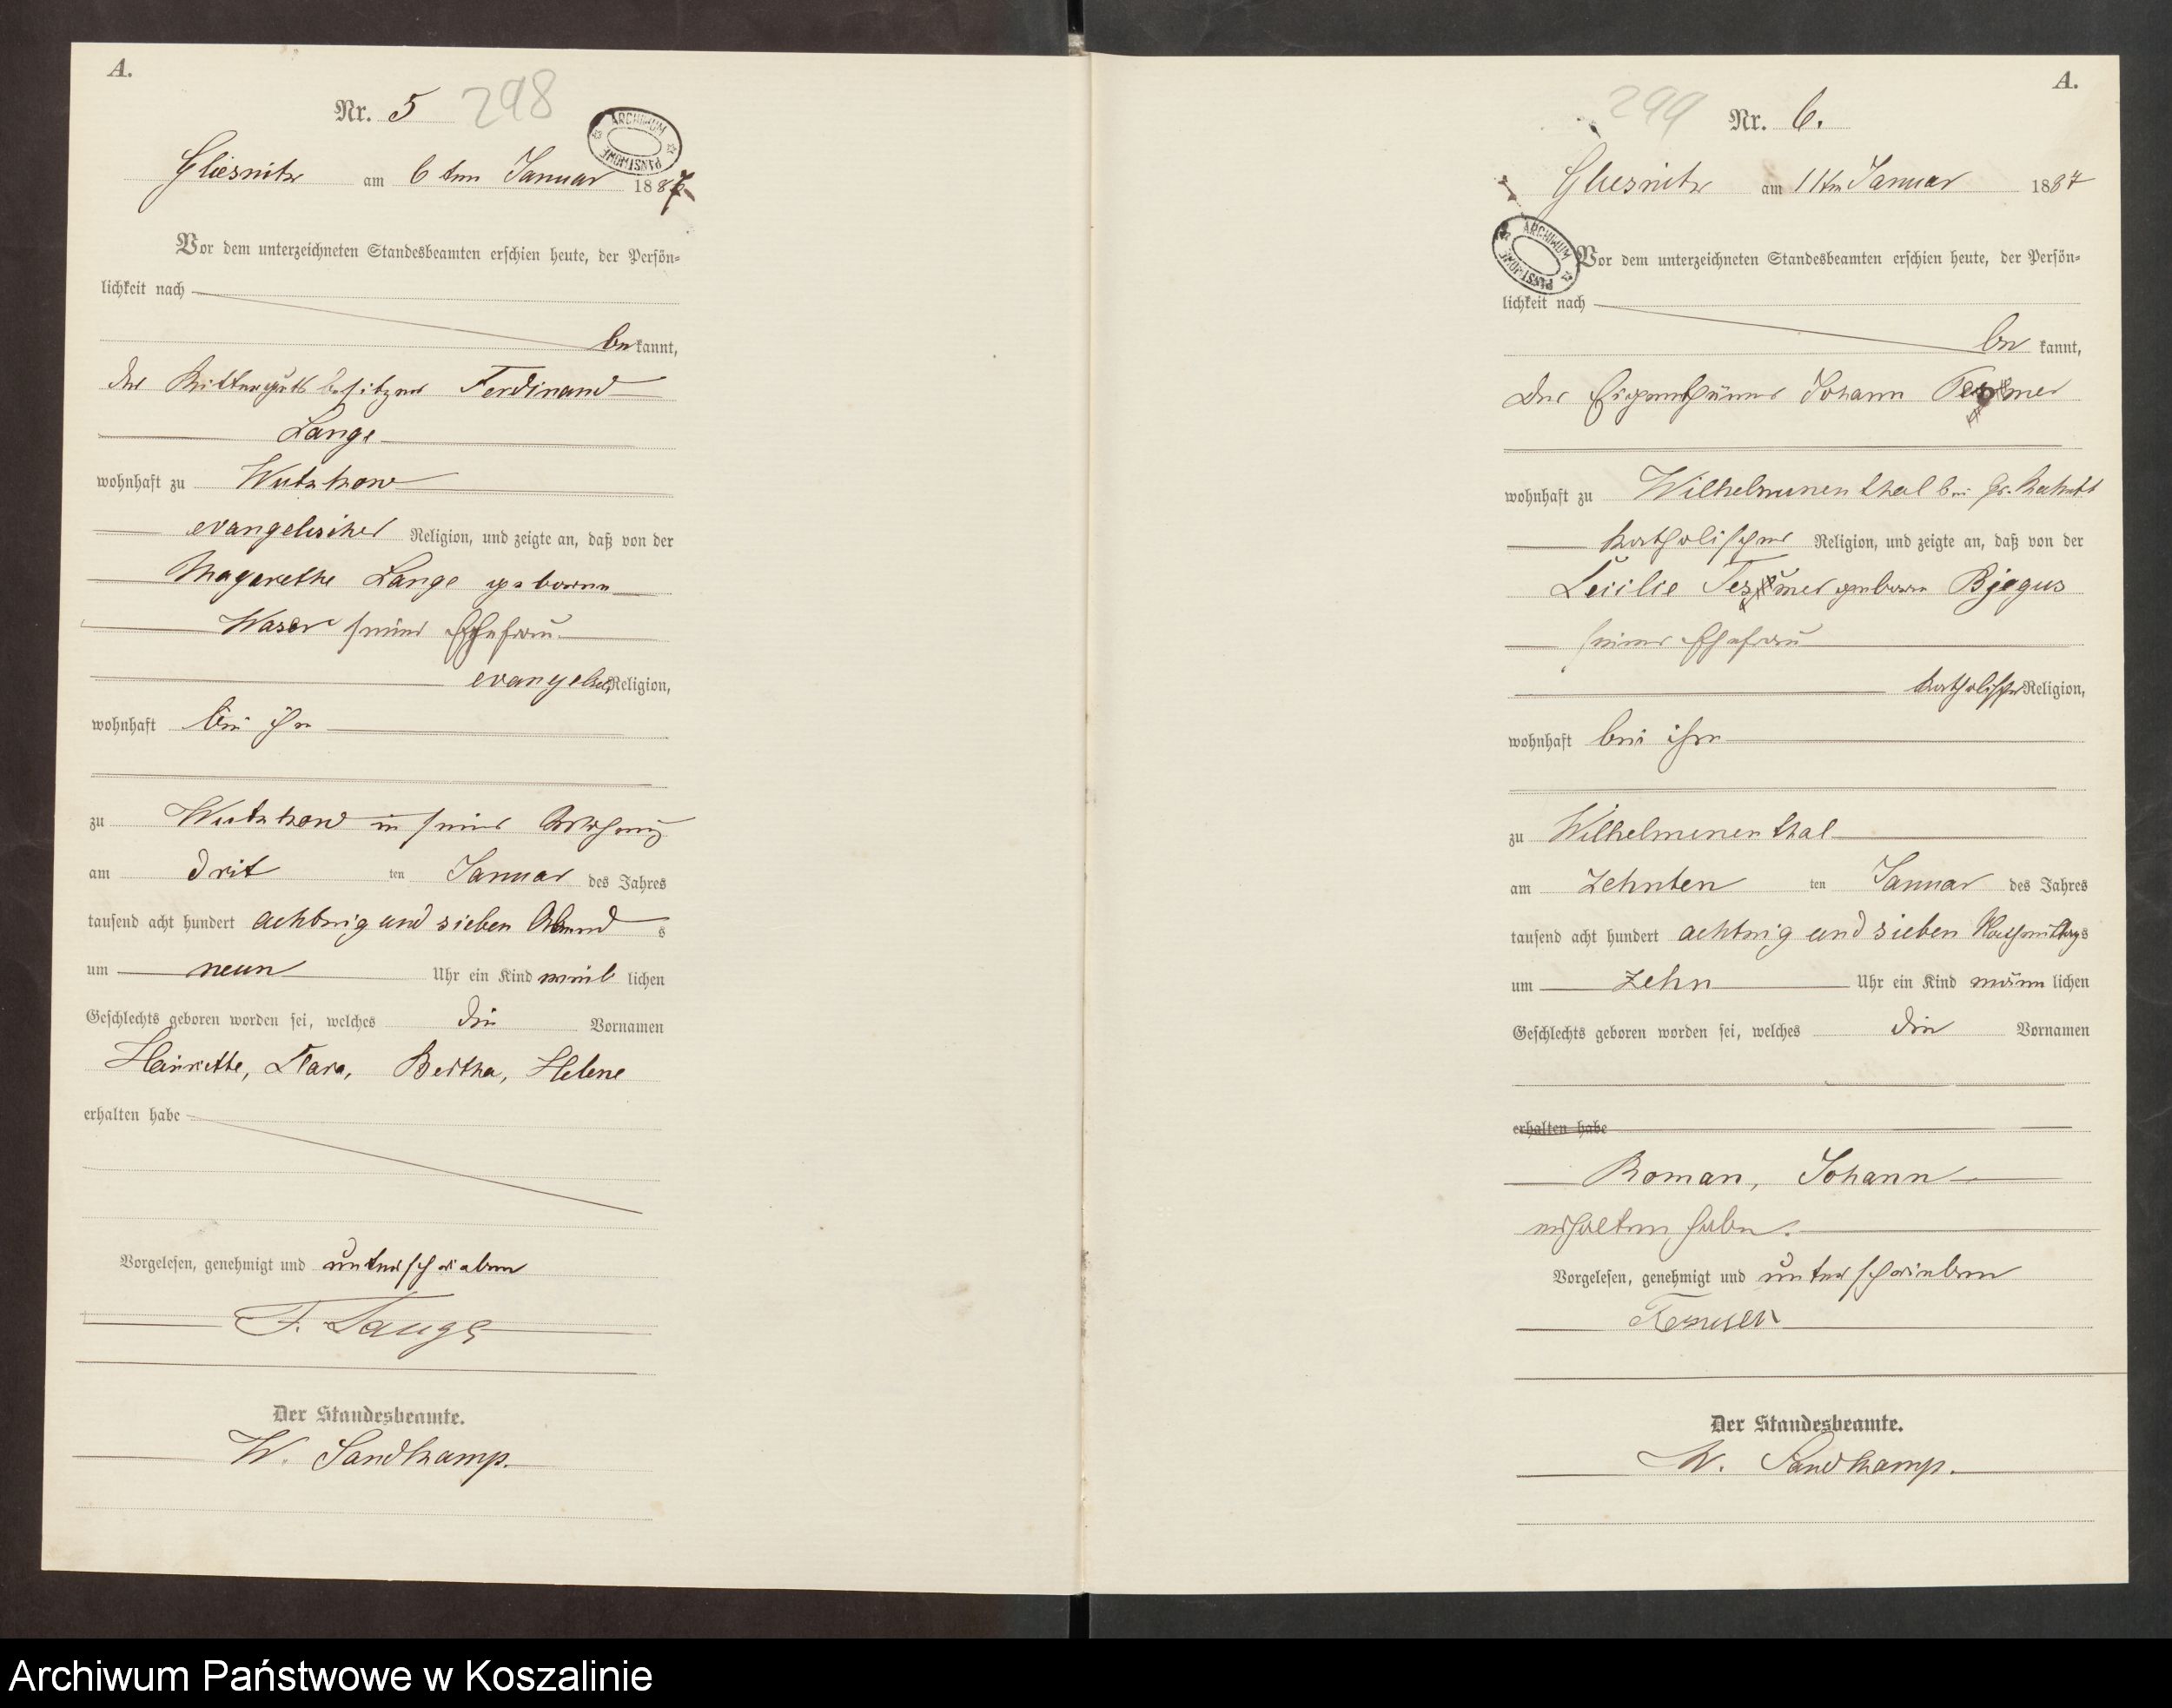 A.
Nr. 5 298
ARCHIWUM PAŃSTWOWE
Gliesnitz am 6ten Januar 1887
Vor dem unterzeichneten Standesbeamten erschien heute, der Persön-
lichkeit nach
bekannt,
der Rittergutsbesitzer Ferdinand
Lange
wohnhaft zu Wutzkow
evangelischer Religion, und zeigte an, daß von der
Magarethe Lange geborene
seiner Ehefrau
Religion,
wohnhaft bei ihm
zu Wutzkow in seiner Wohnung
am drit ten Januar des Jahres
tausend acht hundert achtzig und sieben Abends
um neun Uhr ein Kind weiblichen
Geschlechts geboren worden sei, welches die Vornamen
Henriette, Clara, Bertha, Helene
erhalten habe
Vorgelesen, genehmigt und unterschrieben
F. Lange
Der Standesbeamte.
W. Sandkamp.
A.
299 Nr. 6.
Gliesnitz am 11ten Januar 1887
ARCHIWUM PAŃSTWOWE
Vor dem unterzeichneten Standesbeamten erschien heute, der Persön-
lichkeit nach
bekannt,
Der Eigenthümer Johann
wohnhaft zu Wilhelminenthal bei Gr.
katholischer Religion, und zeigte an, daß von der
Cecilie geborene
seiner Ehefrau
katholischer Religion,
wohnhaft bei ihm
zu Wilhelminenthal
am zehnten ten Januar des Jahres
tausend acht hundert achtzig und sieben Nachmittags
um zehn Uhr ein Kind männlichen
Geschlechts geboren worden sei, welches die Vornamen
erhalten habe
Roman, Johann
erhalten habe.
Vorgelesen, genehmigt und unterschrieben
Der Standesbeamte.
W. Sandkamp.
Archiwum Państwowe w Koszalinie